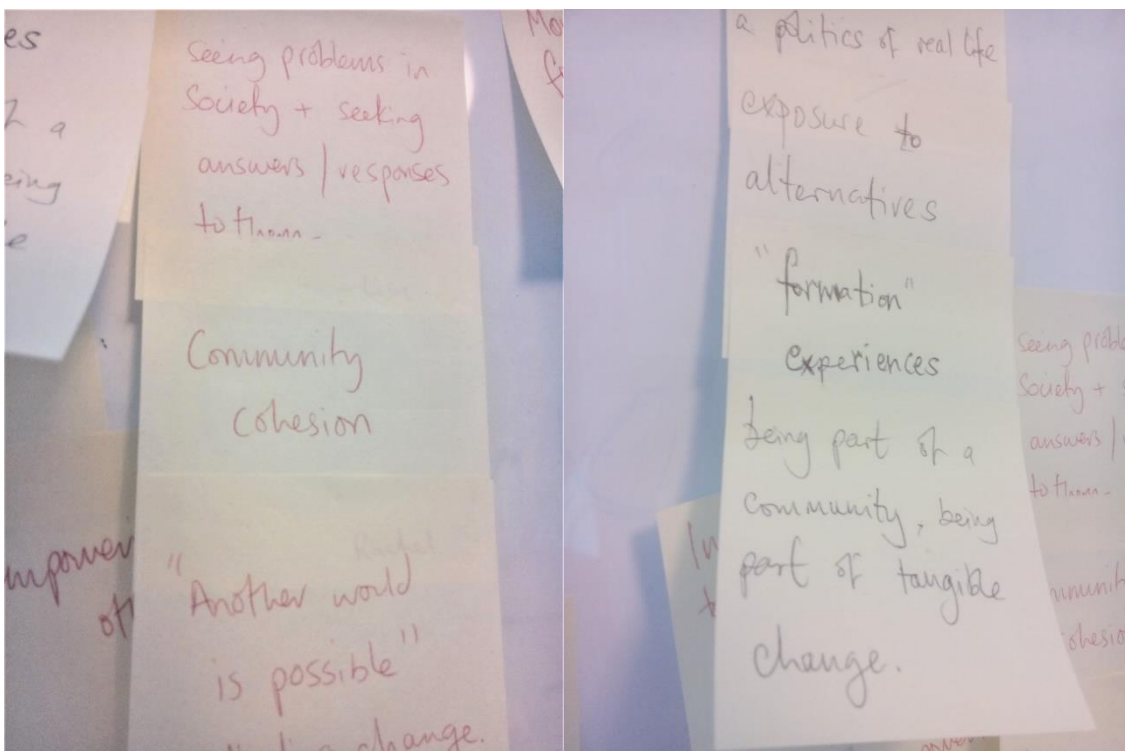 es
a
eing
seeing problems in
society + seeking
answers / responses
to
Community
cohesion
"Another would
is possible"
change.
a politics of real life
exposure to
alternatives
"formation"
experiences
being part of a
community, being
part of tangible
change.
seeing proble
society +
answers /
to